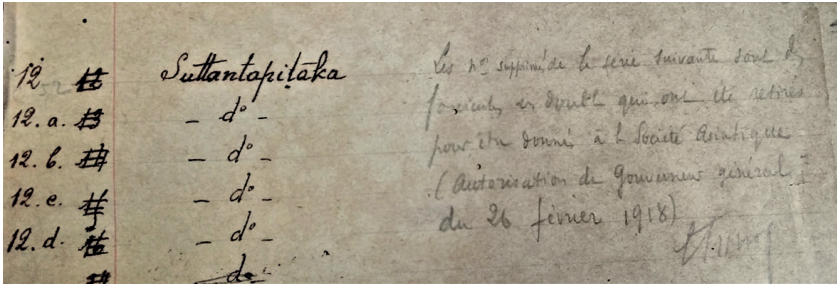 12 Suttantapitaka
12.a. 13 - d° -
12.b. 14 - d° -
12.c. 15 - d° -
12.d. 16 - d° -
d°
Les nos supprimés de la série suivante sont des
fascicules en double qui ont été retirés
pour être donnés à la Société Asiatique
(Autorisation de Gouverneur général
du 26 février 1918)